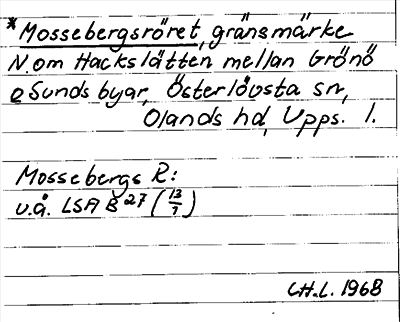 *Mossebergsröret, gränsmärke
N. om Hackslätten mellan Grönö
o Sunds byar, Österlövsta sn,
Olands hd, Upps. l.
Mossebergs R:
u.å. LSA B 27 (13/7)
CH.L. 1968